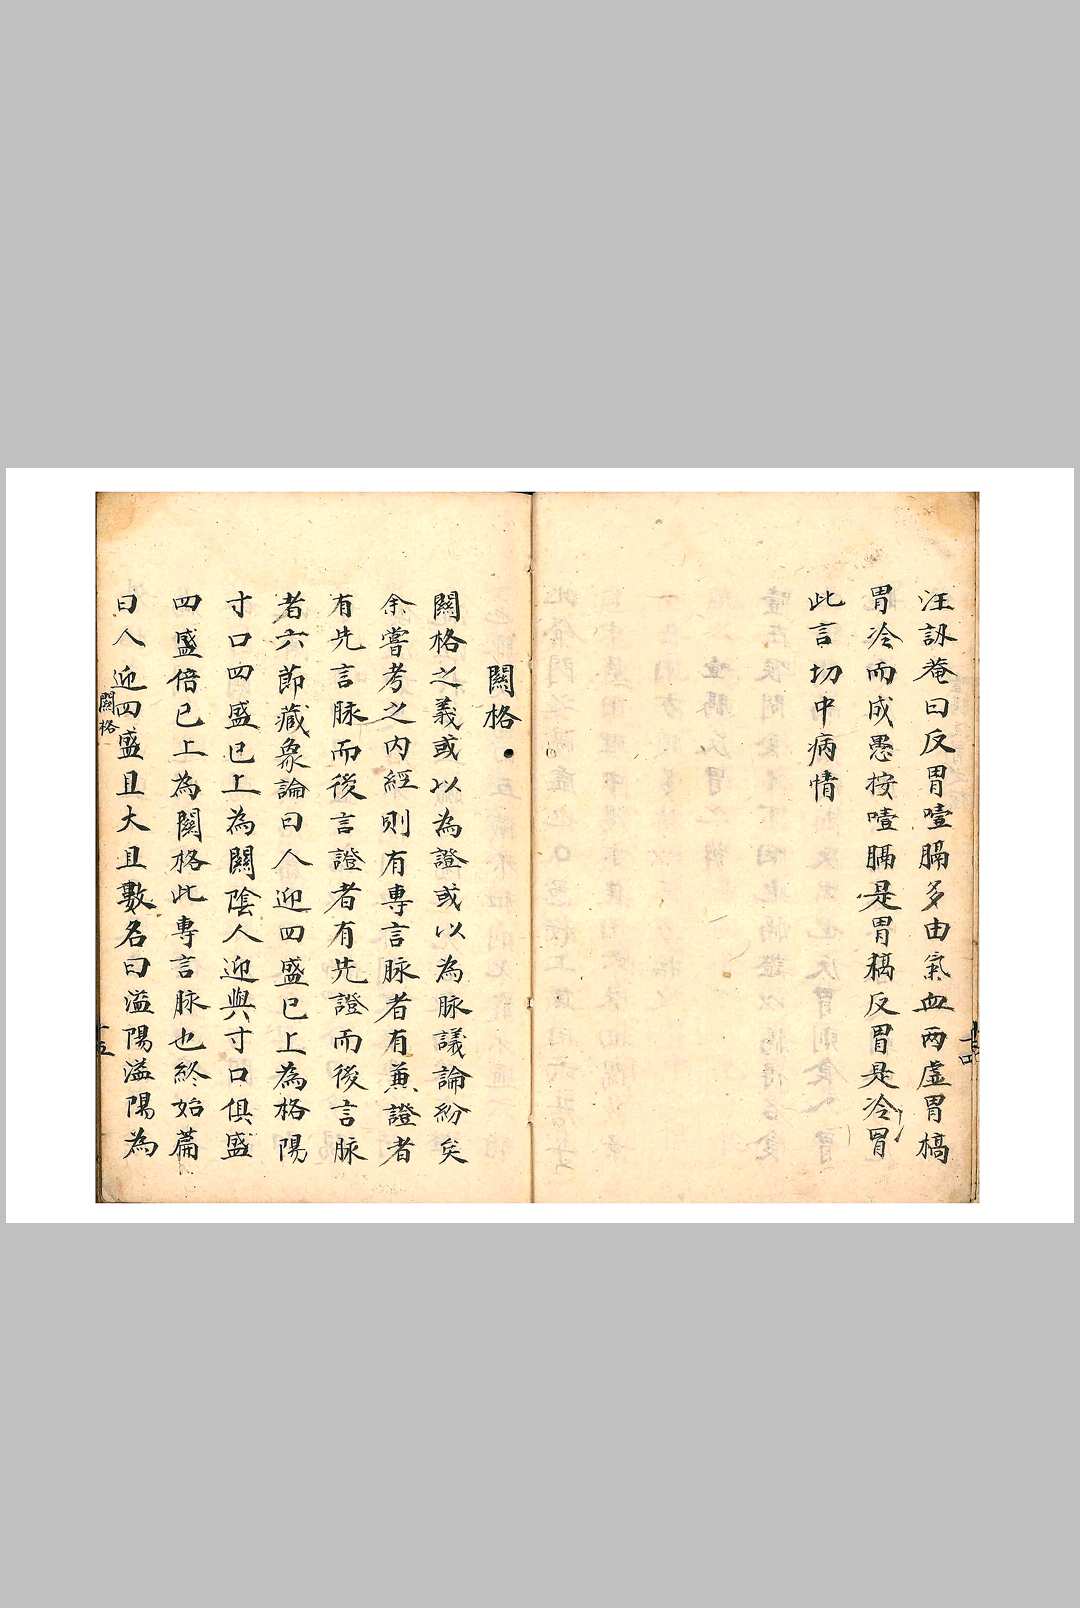 汪訒菴曰反胃噎膈多由氣血兩虛胃槁
胃冷而成愚按噎膈是胃槁反胃是冷胃
此言切中病情
十四
關格
關格之義或以為證或以為脉議論紛矣
余嘗考之内經則有專言脉者有兼證者
有先言脉而後言證者有先證而後言脉
者六節藏象論曰人迎四盛已上為格陽
寸口四盛已上為關陰人迎與寸口俱盛
四盛倍已上為關格此專言脉也終始篇
曰人迎四盛且大且數名曰溢陽溢陽為
關格
十五